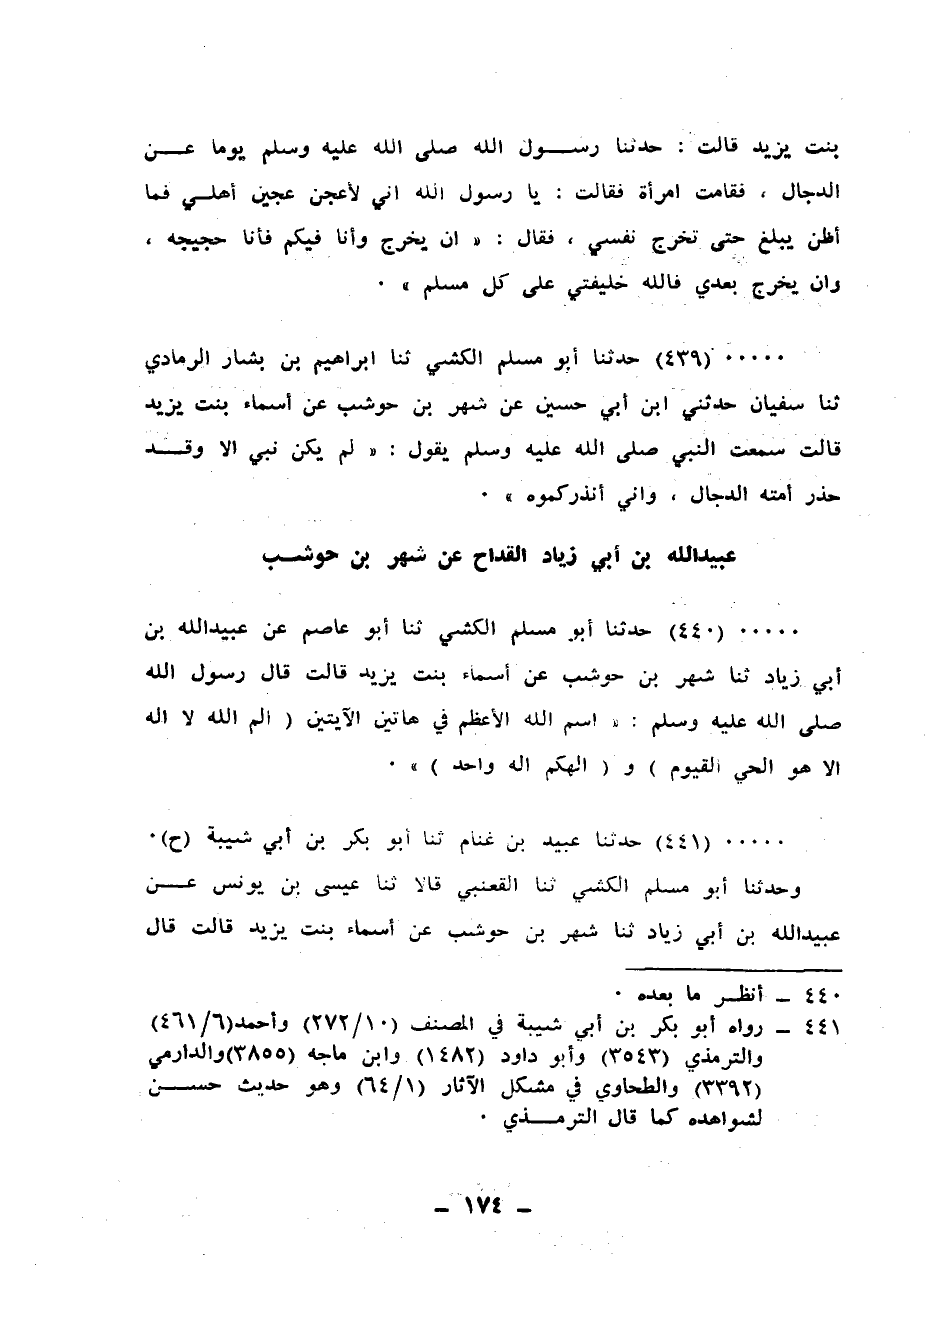 بنت يزيد قالت : حدثنا رســول الله صلى الله عليه وسلم يوما عــن
الدجال ، فقامت امرأة فقالت : يا رسول الله اني لأعجن عجين أهلــي فما
أظن يبلغ حتى تخرج نفسي ، فقال : « ان يخرج وأنا فيكم فأنا حجيجه ،
وان يخرج بعدي فالله خليفتي على كل مسلم » ٠
٠٠٠٠٠ (٤٣٩) حدثنا أبو مسلم الكشي ثنا ابراهيم بن بشار الرمادي
ثنا سفيان حدثني ابن أبي حسين عن شهر بن حوشب عن أسماء بنت يزيد
قالت سمعت النبي صلى الله عليه وسلم يقول : « لم يكن نبي الا وقــد
حذر أمته الدجال ، واني أنذركموه » ٠
عبيدالله بن أبي زياد القداح عن شهر بن حوشــب
٠٠٠٠٠ (٤٤٠) حدثنا أبو مسلم الكشي ثنا أبو عاصم عن عبيدالله بن
أبي زياد ثنا شهر بن حوشب عن أسماء بنت يزيد قالت قال رسول الله
صلى الله عليه وسلم : « اسم الله الأعظم في هاتين الآيتين ( الم الله لا اله
الا هو الحي القيوم ) و ( الهكم اله واحد ) » ٠
٠٠٠٠٠ (٤٤١) حدثنا عبيد بن غنام ثنا أبو بكر بن أبي شيبة (ح)٠
وحدثنا أبو مسلم الكشي ثنا القعنبي قالا ثنا عيسى بن يونس عــن
عبيدالله بن أبي زياد ثنا شهر بن حوشب عن أسماء بنت يزيد قالت قال
٤٤٠ ــ أنظــر ما بعده ٠
٤٤١ ــ رواه أبو بكر بن أبي شيبة في المصنف (٢٧٢/١٠) وأحمد(٤٦١/٦)
والترمذي (٣٥٤٣) وأبو داود (١٤٨٢) وابن ماجه (٣٨٥٥)والدارمي
(٣٣٩٢) والطحاوي في مشكل الآثار (٦٤/١) وهو حديث حســن
لشواهده كما قال الترمــذي ٠
ــ ١٧٤ ــ